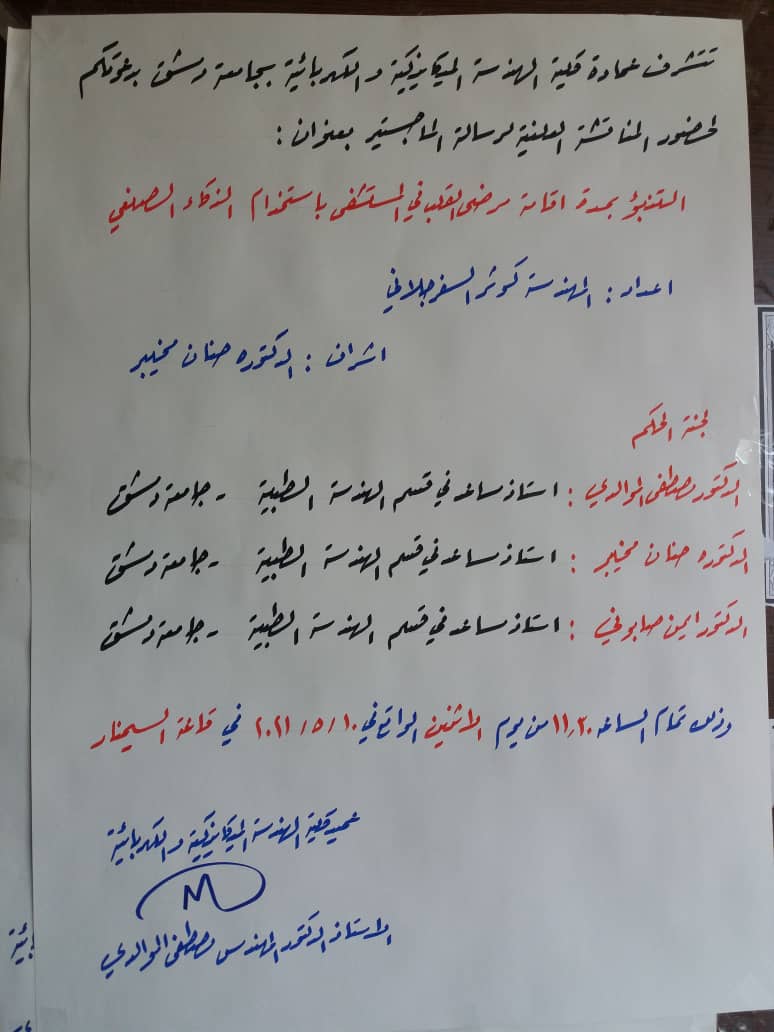 تتشرف عمادة كلية الهندسة الميكانيكية والكهربائية بجامعة دمشق بدعوتكم
لحضور المناقشة العلنية لرسالة الماجستير بعنوان :
التنبؤ بمدة اقامة مرضى القلب في المستشفى باستخدام الذكاء الصنعي
اعداد : المهندسة كوثر السفرجلاني
اشراف : الدكتوره حنان مخيبر
لجنة الحكم
الدكتور مصطفى الموالدي : استاذ مساعد في قسم الهندسة الطبية - جامعة دمشق
الدكتوره حنان مخيبر : استاذ مساعد في قسم الهندسة الطبية - جامعة دمشق
الدكتور ايمن صابوني : استاذ مساعد في قسم الهندسة الطبية - جامعة دمشق
وذلك تمام الساعه ١١,٣٠ من يوم الاثنين الواقع في ١٠ / ٥ / ٢٠٢١ في قاعة السيمنار
عميد كلية الهندسة الميكانيكية والكهربائية
الاستاذ الدكتور المهندس مصطفى الموالدي